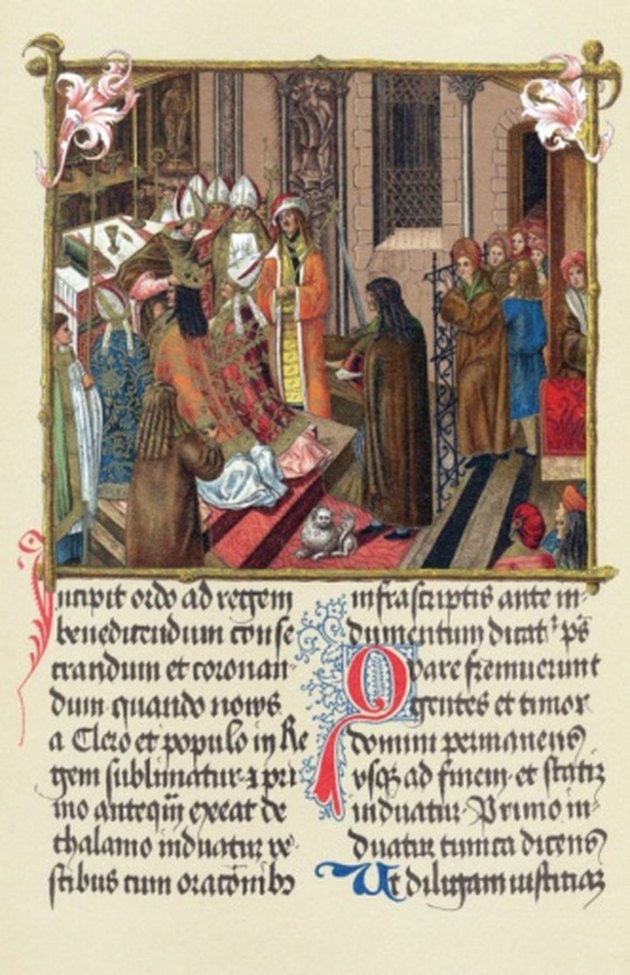 Incipit ordo ad regem
benedicendum conse
crandum et coronan-
dum quando nows
a Clero et populo in Re
gem sublimatur. ⁊ pri
mo anteq̄m exeat de
thalamo induatur ve-
stibus cum oracōnibꝫ
infrascriptis ante in-
dumentum dicat² ps̄
Quare fremuerunt
gentes et timor
domini permanens
vsqꝫ ad finem. et statiꝫ
induatur. Primo in-
duatur tunica dicens
Ut diligam iusticiaꝫ